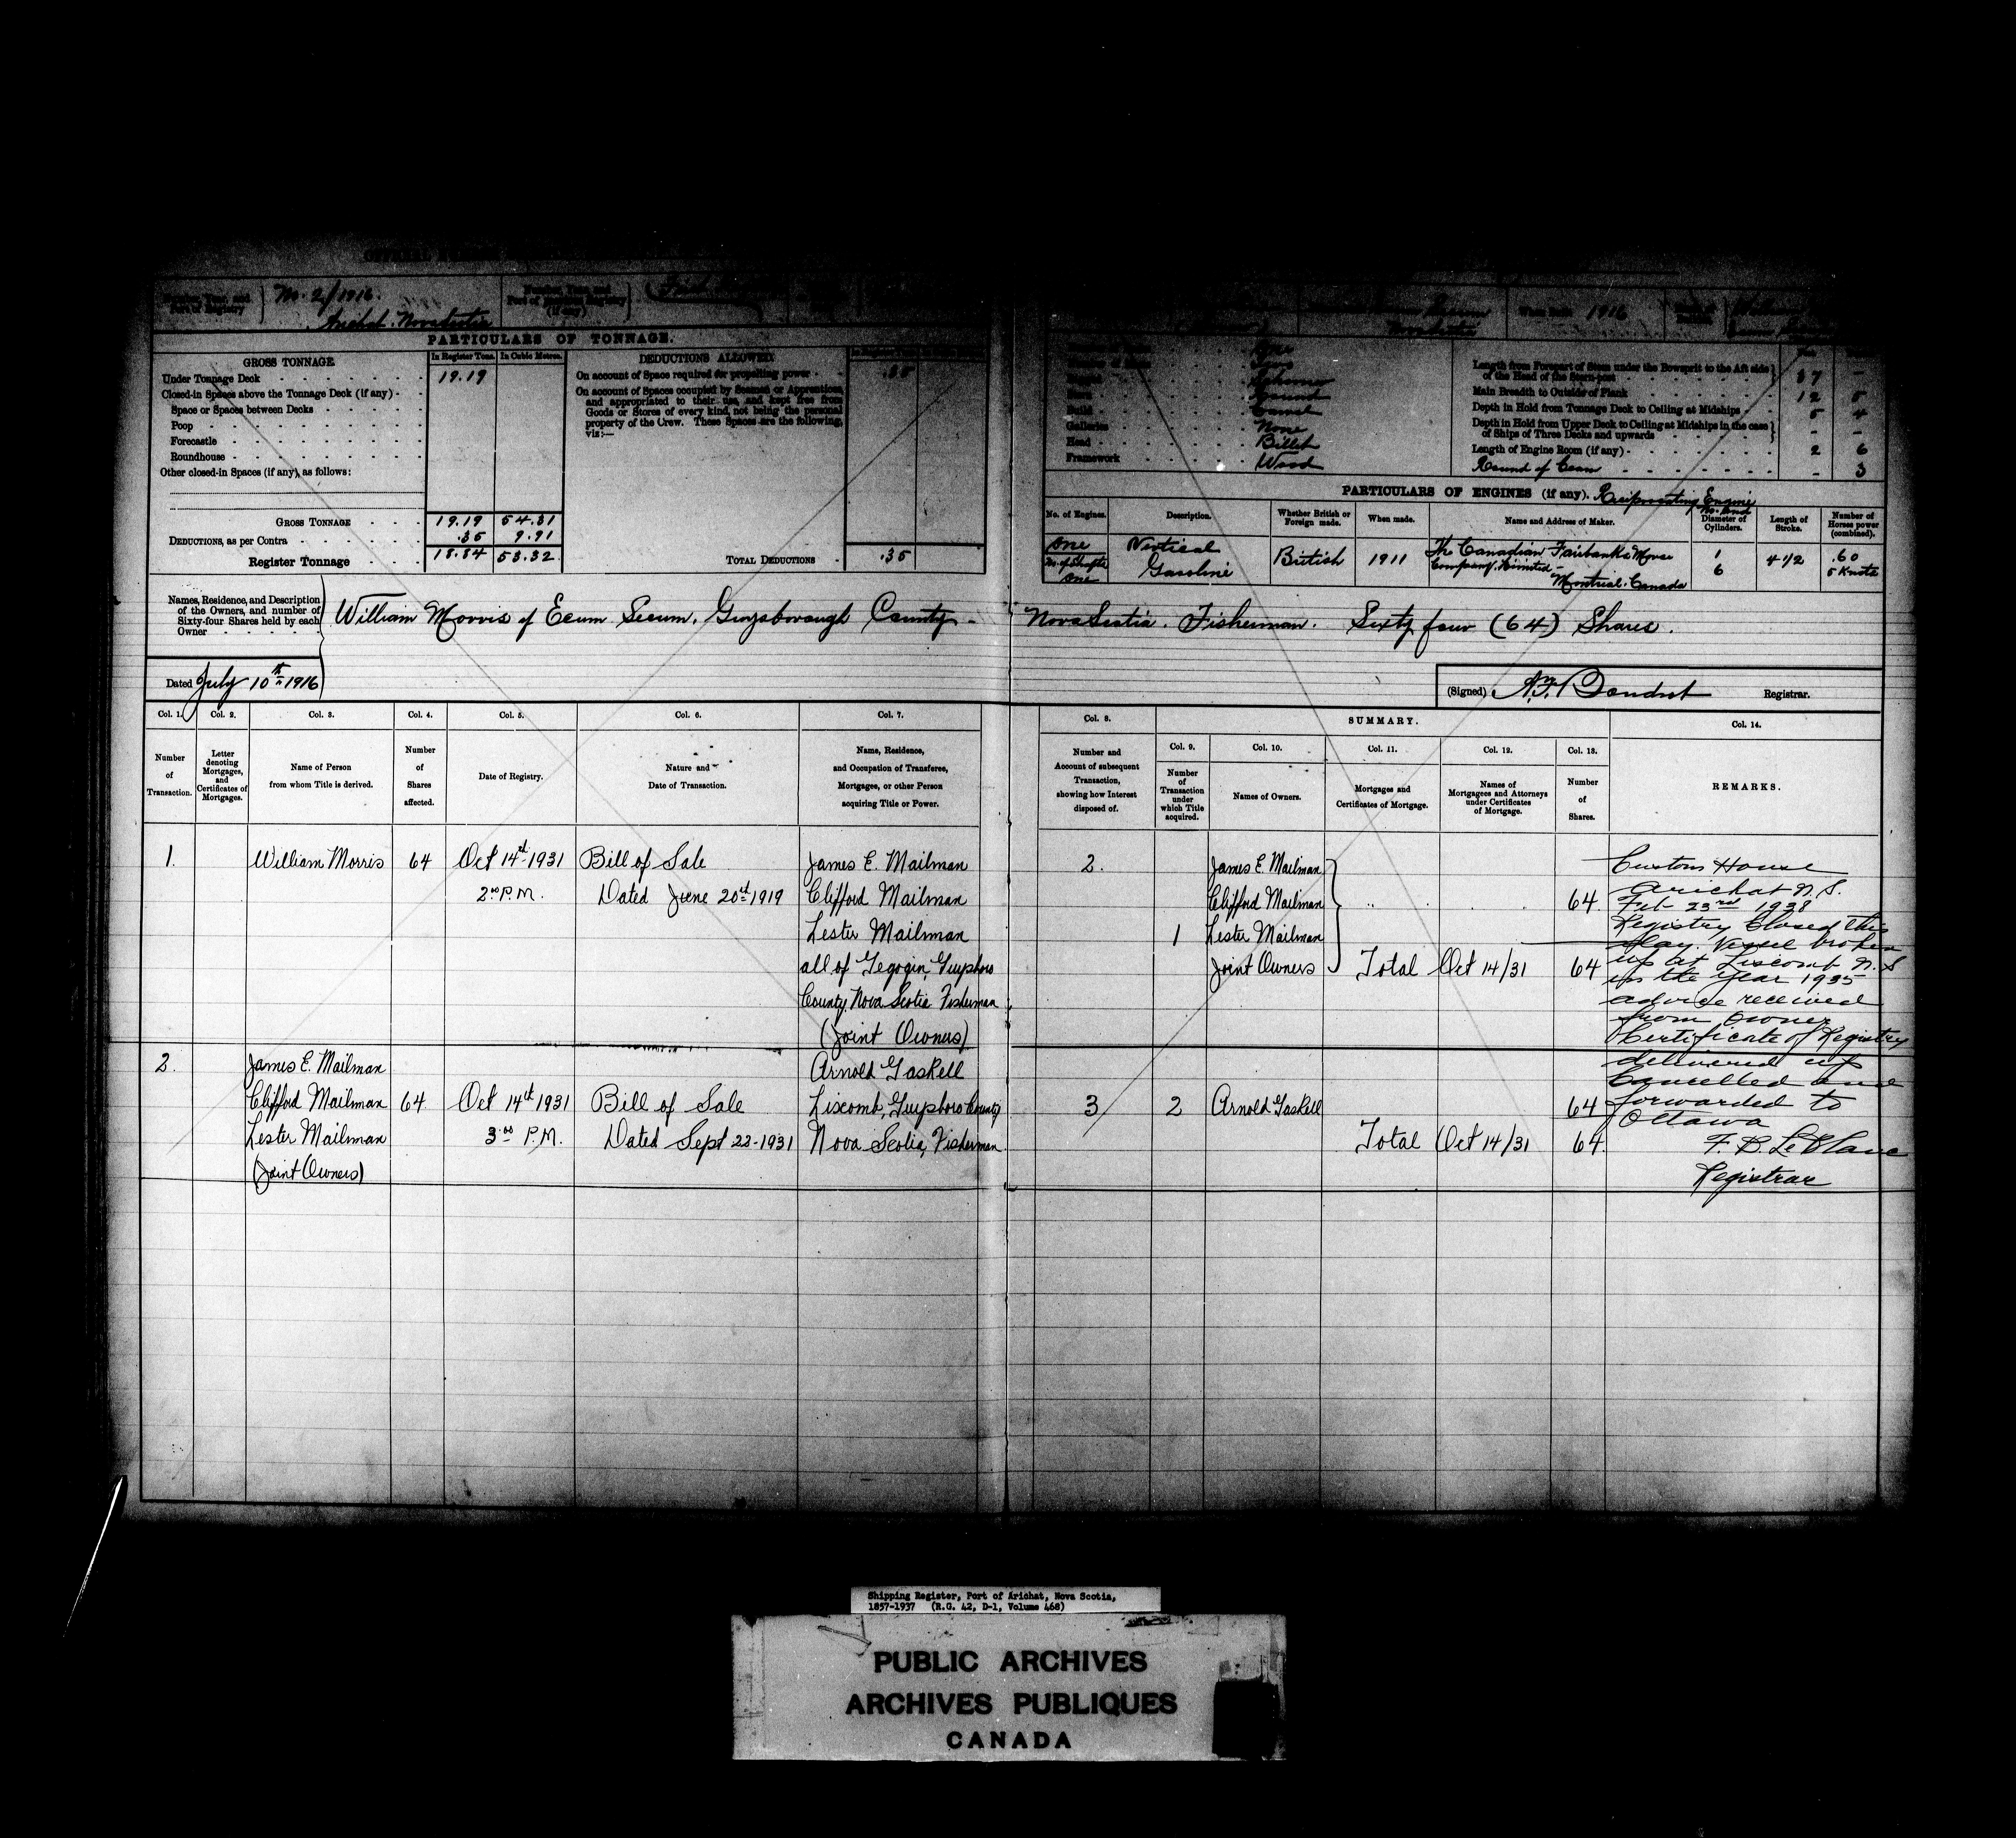 No. 2/1916.
Port of Registry
Arichat. Nova Scotia
Port of
Registry
(if any)
When Built 1916
Nova Scotia
PARTICULARS OF TONNAGE.
GROSS TONNAGE
In Register Tons. In Cubic Metres.
DEDUCTIONS ALLOWED.
Under Tonnage Deck 19.19
On account of Space required for propelling power .35
Closed-in Spaces above the Tonnage Deck (if any)
Space or Spaces between Decks
Poop
Forecastle
Roundhouse
Other closed-in Spaces (if any), as follows:
On account of Spaces occupied by Seamen or Apprentices,
and appropriated to their use, and kept free from
Goods or Stores of every kind, not being the personal
property of the Crew. These Spaces are the following,
viz:—
GROSS TONNAGE 19.19 54.31
DEDUCTIONS, as per Contra .35 9.91
Register Tonnage 18.84 53.32
TOTAL DEDUCTIONS .35
Schooner
Build
Galleries None
Head Billet
Framework Wood
Length from Forepart of Stem under the Bowsprit to the Aft side
of the Head of the Stern-post 37 -
Main Breadth to Outside of Plank 12 5
Depth in Hold from Tonnage Deck to Ceiling at Midships 5 4
Depth in Hold from Upper Deck to Ceiling at Midships in the case
of Ships of Three Decks and upwards - -
Length of Engine Room (if any) 2 6
Round of beam - 3
PARTICULARS OF ENGINES (if any). Reciprocating Engine
No. of Engines. Description. Whether British or Foreign made. When made. Name and Address of Maker. No. and Diameter of Cylinders. Length of Stroke. Number of Horses power (combined).
One Vertical British 1911 The Canadian Fairbanks Morse 1 4 1/2 .60
No. of Shafts Gasoline Company, Limited - 6 5 Knots
One Montreal. Canada
Names, Residence, and Description
of the Owners, and number of
Sixty-four Shares held by each
Owner
William Morris of Ecum Secum. Guysborough County - Nova Scotia. Fisherman. Sixty four (64) Shares.
Dated July 10th 1916
(Signed) Registrar.
Col. 1. Col. 2. Col. 3. Col. 4. Col. 5. Col. 6. Col. 7.
Number of Transaction.
Letter denoting Mortgages, and Certificates of Mortgages.
Name of Person from whom Title is derived.
Number of Shares affected.
Date of Registry.
Nature and Date of Transaction.
Name, Residence, and Occupation of Transferee, Mortgagee, or other Person acquiring Title or Power.
Col. 8. SUMMARY. Col. 14.
Col. 9. Col. 10. Col. 11. Col. 12. Col. 13.
Number and Account of subsequent Transaction, showing how Interest disposed of.
Number of Transaction under which Title acquired.
Names of Owners.
Mortgages and Certificates of Mortgage.
Names of Mortgagees and Attorneys under Certificates of Mortgage.
Number of Shares.
REMARKS.
1. William Morris 64 Oct 14th 1931 Bill of Sale James E. Mailman
2.00 P.M. Dated June 20th 1919 Clifford Mailman
Lester Mailman
all of Gegogin Guysboro
County Nova Scotia Fisherman
(Joint Owners)
2. James E. Mailman
Clifford Mailman 64
1 Lester Mailman
Joint Owners Total Oct 14/31 64
2. James E. Mailman Arnold Gaskell
Clifford Mailman 64 Oct 14th 1931 Bill of Sale Liscomb, Guysboro County
Lester Mailman 3.00 P.M. Dated Sept 22-1931 Nova Scotia, Fisherman
(Joint Owners)
3 2 Arnold Gaskell 64
Total Oct 14/31 64
Customs House
Arichat N.S.
Feb 23rd 1938
Registry Closed this
day. Vessel broken
up at Liscomb N.S
in the year 1935
advice received
from Owner
Certificate of Registry
delivered up
Cancelled and
forwarded to
Ottawa
F. B. LeBlanc
Registrar
Shipping Register, Port of Arichat, Nova Scotia,
1857-1937 (R.G. 42, D-1, Volume 468)
PUBLIC ARCHIVES
ARCHIVES PUBLIQUES
CANADA